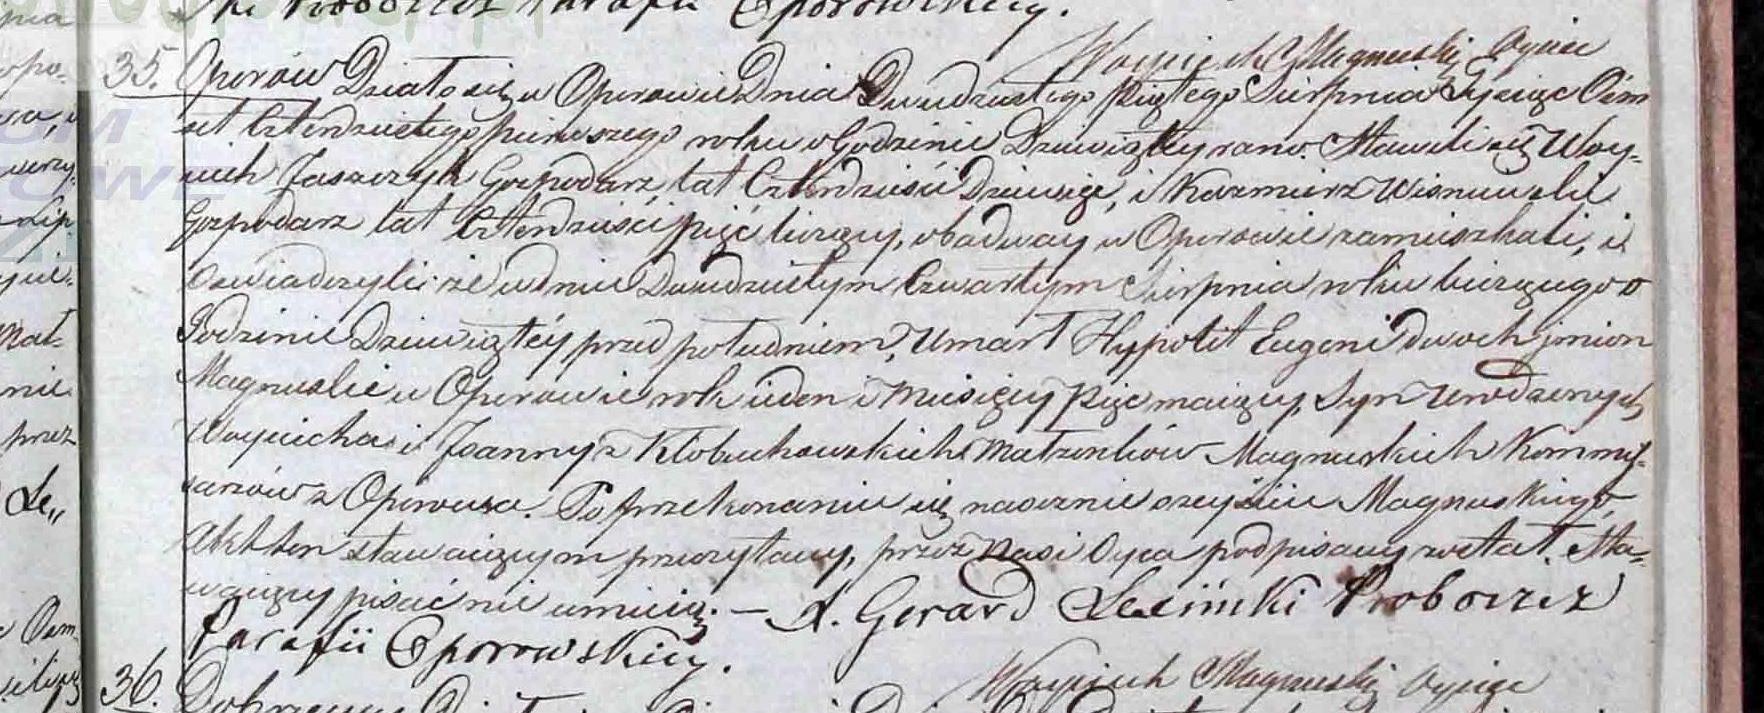 ski Proboszcz Parafii Oporowskiey.
Woyciech Magnuski Oyciec
35. Oporów Działo się w Oporowie Dnia Dwudziestego Piątego Sierpnia Tysiąc Ośm
set Czterdziestego pierwszego roku o Godzinie Dziewiątey rano. Stawili się Woy-
ciech Jaszczyk Gospodarz lat Czterdzieści Dziewięć, i Kazimierz Wisniewski
Gospodarz lat Czterdzieści pięć liczący, obadway w Oporowie zamieszkali, i
Oswiadczyli: że w dniu Dwudziestym Czwartym Sierpnia roku bieżącego o
Godzinie Dziewiątéy przed południem, Umarł Hyppolit Eugeni dwoch jmion
Magnuski w Oporowie rok ieden i Miesięcy Pięc maiący, Syn Urodzonych
Woyciecha i Joanny z Kłobuchowskich Małżonków Magnuskich Kommis-
sarzów z Oporowa. Po przekonaniu się naocznie o zeyściu Magnuskiego,
Akt ten stawaiącym przeczytany, przez Nas i Oyca podpisany został. Sta-
waiący pisać nie umieią. — X. Gerard Lesiński Proboszcz
Parafii Oporowskiey.
Woyciech Magnuski Oyciec
36.